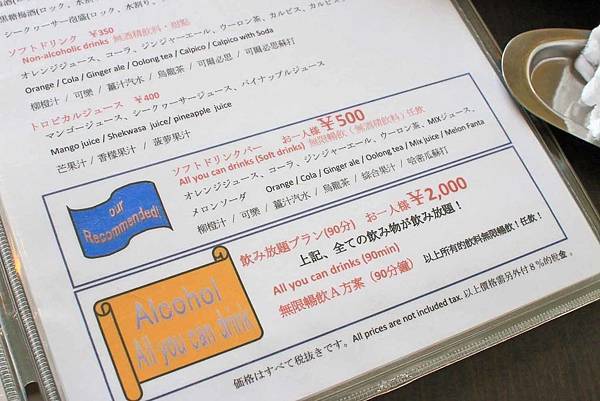 黒糖梅酒(ロック、水割
シークヮーサー泡盛(ロック、水割り、
ソフトドリンク ￥350
Non-alcoholic drinks 無酒精飲料・甜點
オレンジジュース、コーラ、ジンジャーエール、ウーロン茶、カルピス、カルピス
Orange / Cola / Ginger ale / Oolong tea / Calpico / Calpico with Soda
柳橙汁 / 可樂 / 薑汁汽水 / 烏龍茶 / 可爾必思 / 可爾必思蘇打
トロピカルジュース ￥400
マンゴージュース、シークヮーサージュース、パイナップルジュース
Mango juice / Shekwasa juice/ pineapple juice
芒果汁 / 香檬果汁 / 菠蘿果汁
ソフトドリンクバー お一人様￥500
All you can drinks (Soft drinks) 無限暢飲（無酒精飲料）任飲
オレンジジュース、コーラ、ジンジャーエール、ウーロン茶、MIXジュース、
メロンソーダ Orange / Cola / Ginger ale / Oolong tea / Mix juice / Melon Fanta
柳橙汁 / 可樂 / 薑汁汽水 / 烏龍茶 / 綜合果汁 / 哈密瓜蘇打
our
Recommended!
飲み放題プラン(90分) お一人様￥2,000
上記、全ての飲み物が飲み放題！
All you can drinks (90min)
無限暢飲Ａ方案（90分鐘） 以上所有的飲料無限暢飲！任飲！
Alcohol
All you can drink
価格はすべて税抜きです。All prices are not included tax. 以上價格需另外付８％的稅金。